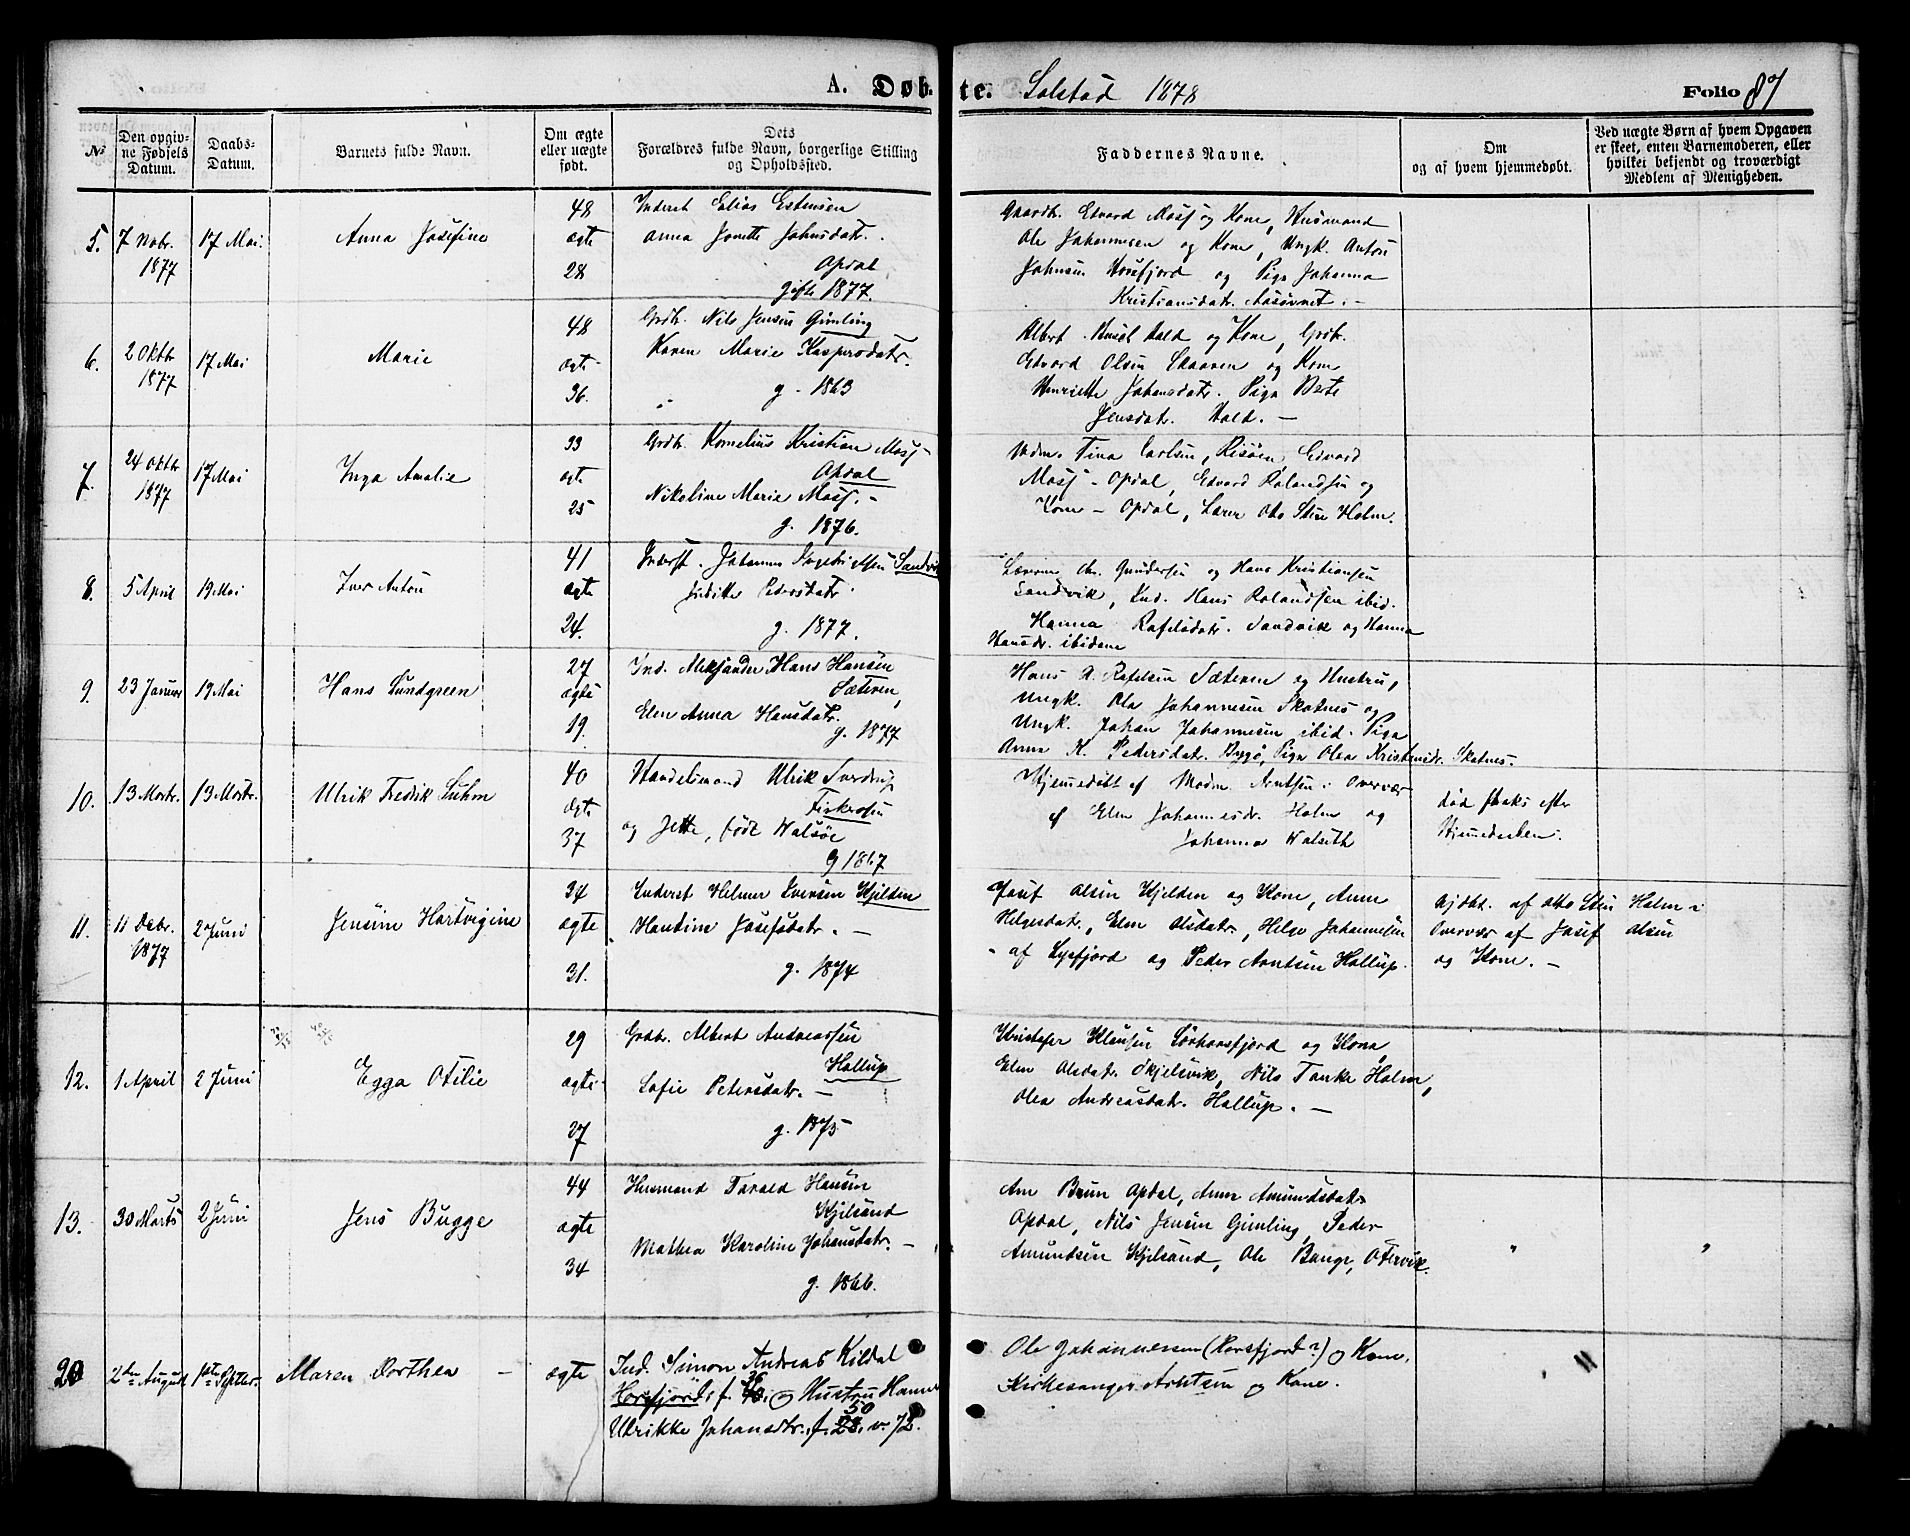 A. Døbte. Solstad 1878 Folio 87
№
Den opgiv-
ne Fødsels
Datum.
Daabs-
Datum.
Barnets fulde Navn.
Om ægte
eller uægte
født.
Dets
Forældres fulde Navn, borgerlige Stilling
og Opholdssted.
Faddernes Navne.
Om
og af hvem hjemmedøbt.
Ved uægte Børn af hvem Opgaven
er skeet, enten Barnemoderen, eller
hvilket bekjendt og troværdigt
Medlem af Menigheden.
5.
7 Nobr.
1877
17 Mai.
Anna Josefine
48
ægte
28
Inderst Elias Estensen
Anna Jonette Johnsdatr.
Opdal
gifte 1877.
Gaardb. Edvard Mosj og Kone, Husmand
Ole Johannesen og Kone, Ungk. Anton
Johnsen Horsfjord og Pige Johanna
Kristiansdatr.
6.
2 Oktbr
1877
17 Mai
Marie
48
ægte
36.
Grdb. Nils Jensen Gimling
Karen Marie Kaspersdatr.
g - 1863
Albert Hald og Kone, Grdb.
Edvard Olsen og Kone
Henriette Johansdatr. Pige Berte
Jensdatr. Hald. —
7.
24 Oktbr
1877
17 Mai
Inga Amalie
33
ægte
25
Grdb. Kornelius Kristian Mosj -
Opdal
Nikoline Marie Mosj. -
g. 1876.
Madm. Tina Carlsen, Risøen, Edvard
Mosj - Opdal, Edvard Rolandsen og
Kone - Opdal, Lærer Otto Steen Holm.
8.
5 April
19 Mai
Iver Anton
41
ægte
24.
Inderst. Johannes Ingebrigtsen Sandvik
Judithe Pedersdatr.
g. 1877.
Lærerne Chr. Gundersen og Hans Kristiansen
Sandvik, Ind. Hans Rolandsen ibid.
Hanna Rafelsdatr. Sandvik og Hanna
Hansdr. ibidem
9.
23 Januar
19 Mai
Hans Lundgreen
27
ægte
19.
Ind. Aleksander Hans Hansen
Sæteren,
Elen Anna Hansdatr.
g. 1877
Hans A. Rafelsen Sæteren og Hustru,
Ungk. Ole Johannesen Skotnes og
Ungk. Johan Johannesen ibid. Pige
Anna K. Pedersdatr. Bygø, Pige Olea Kristensdr. Skotnes.
10.
13 Marts.
13 Marts.
Ulrik Fredrik Suhm
40
ægte
37
Handelsmand Ulrik Sverdrup
Fiskersen
og Jette, født Walsøe
g 1867
Hjemmedøbt af Madm. Arntsen i Overvær
af Elen Johannesdr. Holm og
Johanna Walseth
død straks efter
Hjemmedaaben.
11.
11 Debr.
1877
2 Juni
Jensine Hartvigine
34
ægte
31.
Inderst Helmer Iversen Kjelden
Hantine Josefsdatr. —
g. 1874
Josef Olsen Kjelden og Kone, Anne
Helgesdatr., Elen Olsdatr, Helge Johannesen
af Lysfjord og Peder Arntsen Hallup.
Hjdbt. af Otto Steen Holm i
Overvær af Josef Olsen
og Kone. —
12.
1 April
2 Juni
Egga Otilie
29
ægte
27
Grdb. Albert Andreassen
Hallup
Sofie Petersdatr. —
g. 1875
Kristofer Klausen Sørhorsfjord og Kone
Elen Olsdatr. Skjelsvik, Nils Tanke Holm,
Olea Andreasdatr. Hallup. —
13.
30 Marts
2 Juni
Jens Bugge
44
ægte
34
Husmand Tarald Hansen
Kjelsand
Mathea Karoline Johansdatr. —
g. 1866.
Arn Brun Opdal, Anne Amundsdatr
Opdal, Nils Jensen Gimling, Peder
Amundsen Kjelsand, Ole Bange, Otervik.
"
"
20
2den August
1ste Septbr.
Maren Dorthea —
ægte
Ind. Simon Andreas Kildal
Horsfjord, f. og Hustru Hanna
50
Ulrikke Johansdtr., f. 28. v. 72.
Ole Johannesen (Horsfjord?) og Kone.
Kirkesanger Arntsen og Kone.
"